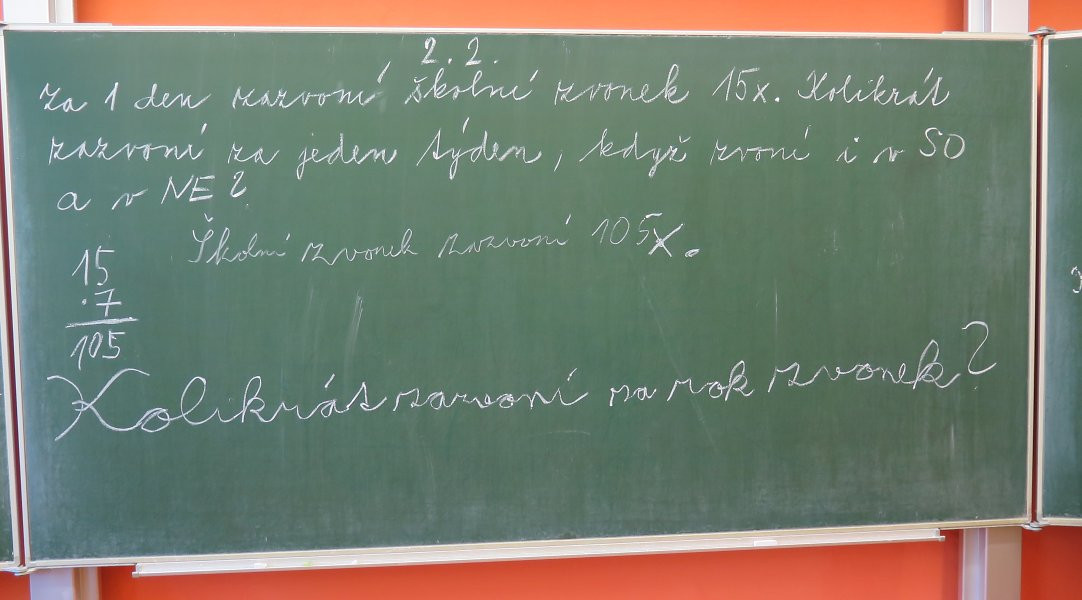 2. 2.
Za 1 den zazvoní školní zvonek 15x. Kolikrát
zazvoní za jeden týden, když zvoní i v SO
a v NE?
Školní zvonek zazvoní 105x.
15
·7
105
Kolikrát zazvoní za rok zvonek?